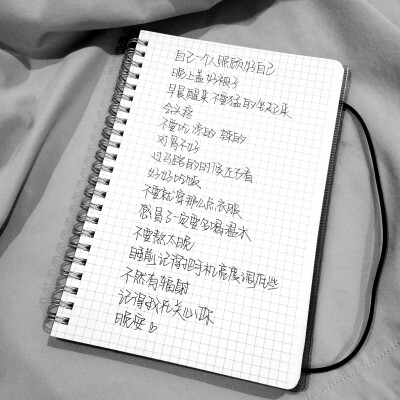 自己一个人照顾好自己
晚上盖好被子
早晨醒来不要猛的坐起来
会头疼
不要吃凉的 辣的
对胃不好
过马路的时候左右看
好好吃饭
不要就穿那么点衣服
感冒了一定要多喝温水
不要熬太晚
睡前记得把手机亮度调低些
不然有辐射
记得我在关心你
晚安♡